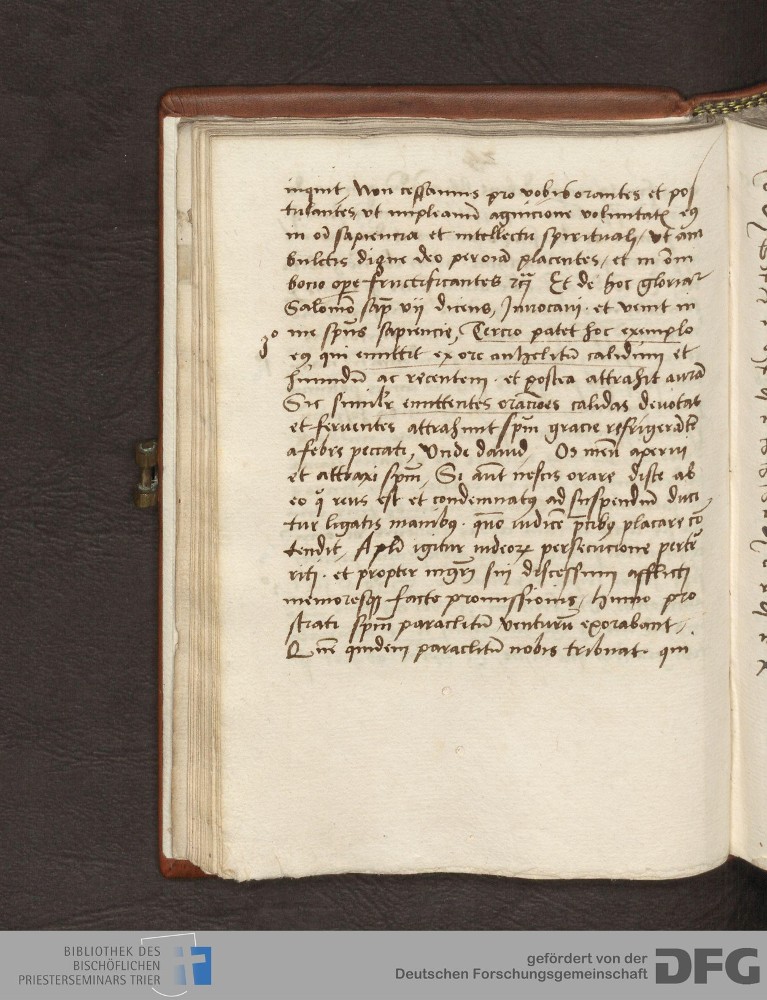 inquit, Non cessamus pro vobis orantes et pos
tulantes, vt impleamī agnicione voluntatꝭ eiꝰ
in oī sapiencia et intellectu spirituali, vt am
buletis digne deo per oīa placentes, et in om̄
bono oꝑe fructificantes Et de hoc gloriaʳ
Salomō sap̄ vij dicens, Inuocaui · et venit in
3º me sp̄us sapiencie, Tercio patet hoc exemplo
eiꝰ qui emittit ex ore anhelitū calidum et
humidū ac recentem · et postea attrahit aurā
Sic similʳ emittentes orac̄ōes calidas deuotas
et feruentes attrahunt sp̄m gracie
a febre peccati, Vnde dauid, Os meū aperui
et attraxi sp̄m, Si aūt nescis orare disce ab
eo q̄ reus est et condemnatꝰ ad suspendiū duci
tur ligatis manibꝰ · quō iudicē p̄cibꝰ placare cō
tendit, Apl̄i igitur iudeoꝝ persecucione perter
riti · et propter mgr̄i sui discessum afflicti
memoresqꝫ facte promissionis, humo pro
strati sp̄m paraclitū venturū exorabant,
Quē quidem paraclitū nobis tribuat · qui
BIBLIOTHEK DES
BISCHÖFLICHEN
PRIESTERSEMINARS TRIER
gefördert von der
Deutschen Forschungsgemeinschaft DFG